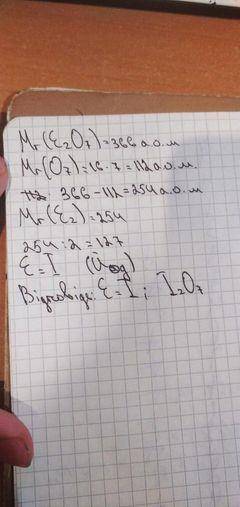 Mr(E₂O₇)=366 а.о.м
Mr(O₇)=16·7=112 а.о.м.
366-112=254 а.о.м
Mr(E₂)=254
254:2=127
E=I (Йод)
Відповідь: E=I; I₂O₇